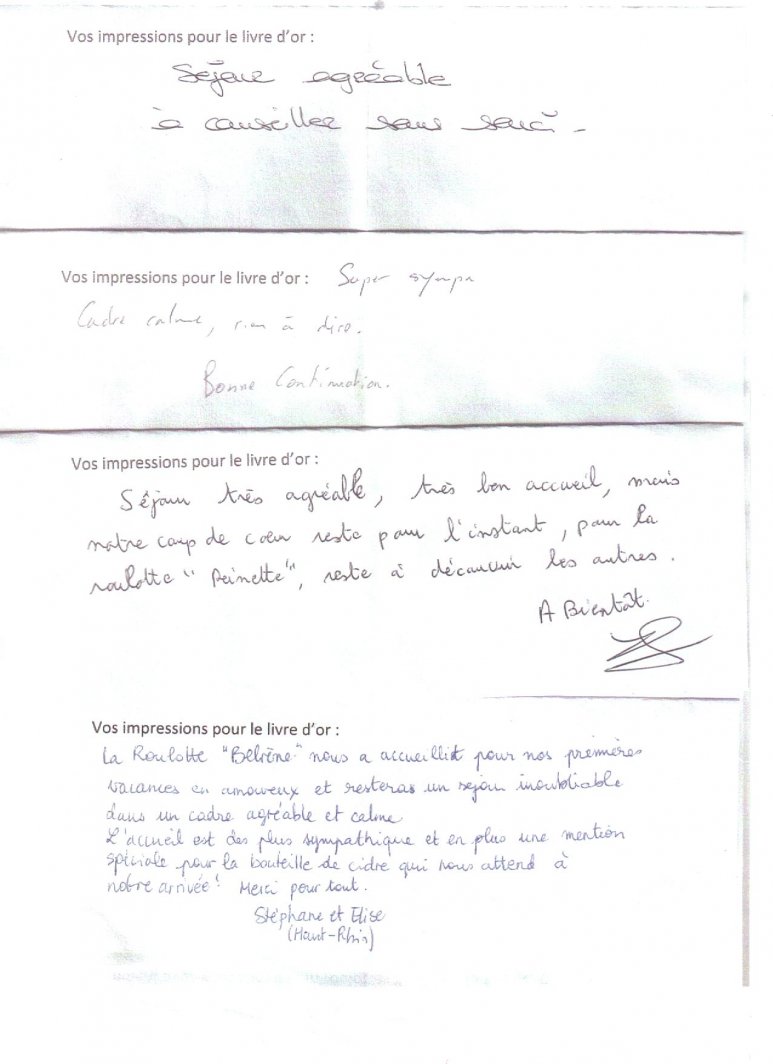 Vos impressions pour le livre d'or :
Séjour agréable
à conseiller sans souci.
Vos impressions pour le livre d'or : Super sympa
Cadre calme, rien à dire.
Bonne Continuation.
Vos impressions pour le livre d'or :
Séjour très agréable, très bon accueil, mais
notre coup de cœur reste pour l'instant, pour la
roulotte "Reinette", reste à découvrir les autres.
A Bientôt.
Vos impressions pour le livre d'or :
La Roulotte "Belrène" nous a accueillit pour nos premières
vacances en amoureux et resteras un sejour inoubliable
dans un cadre agréable et calme
L'accueil est des plus sympathique et en plus une mention
spéciale pour la bouteille de cidre qui nous attend à
notre arrivée ! Merci pour tout.
Stéphane et Elise
(Haut-Rhin)